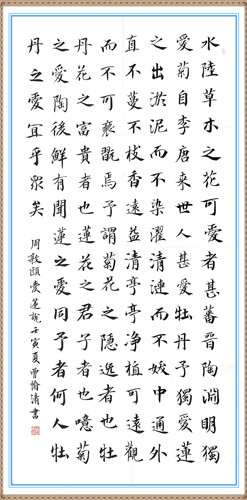 水陸草木之花可愛者甚蕃晉陶淵明獨
愛菊自李唐來世人甚愛牡丹予獨愛蓮
之出淤泥而不染濯清漣而不妖中通外
直不蔓不枝香遠益清亭亭净植可遠觀
而不可褻翫焉予謂菊花之隱逸者也牡
丹花之富貴者也蓮花之君子者也噫菊
之愛陶後鮮有聞蓮之愛同予者何人牡
丹之愛宜乎眾矣
周敦頤愛蓮說壬寅夏曾愉清書